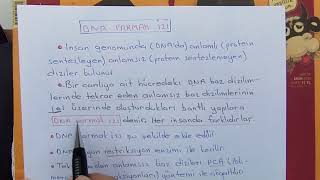 DNA PARMAK İZİ
• İnsan genomunda (DNA'da) anlamlı (protein
sentezleyen) anlamsız (protein sentezlemeyen)
diziler bulunur
• Bir canlıya ait hücredeki DNA baz dizilim-
lerinde tekrar eden anlamsız baz dizilimlerinin
jel üzerinde oluşturdukları bantlı yapılara
DNA parmak izi denir. Her insanda farklıdır.
• DNA parmak izi şu şekilde elde edilir
• DNA restriksiyon enzimi ile kesilir
• anlamsız baz dizileri PCR
reaksiyonları) yöntemi ile